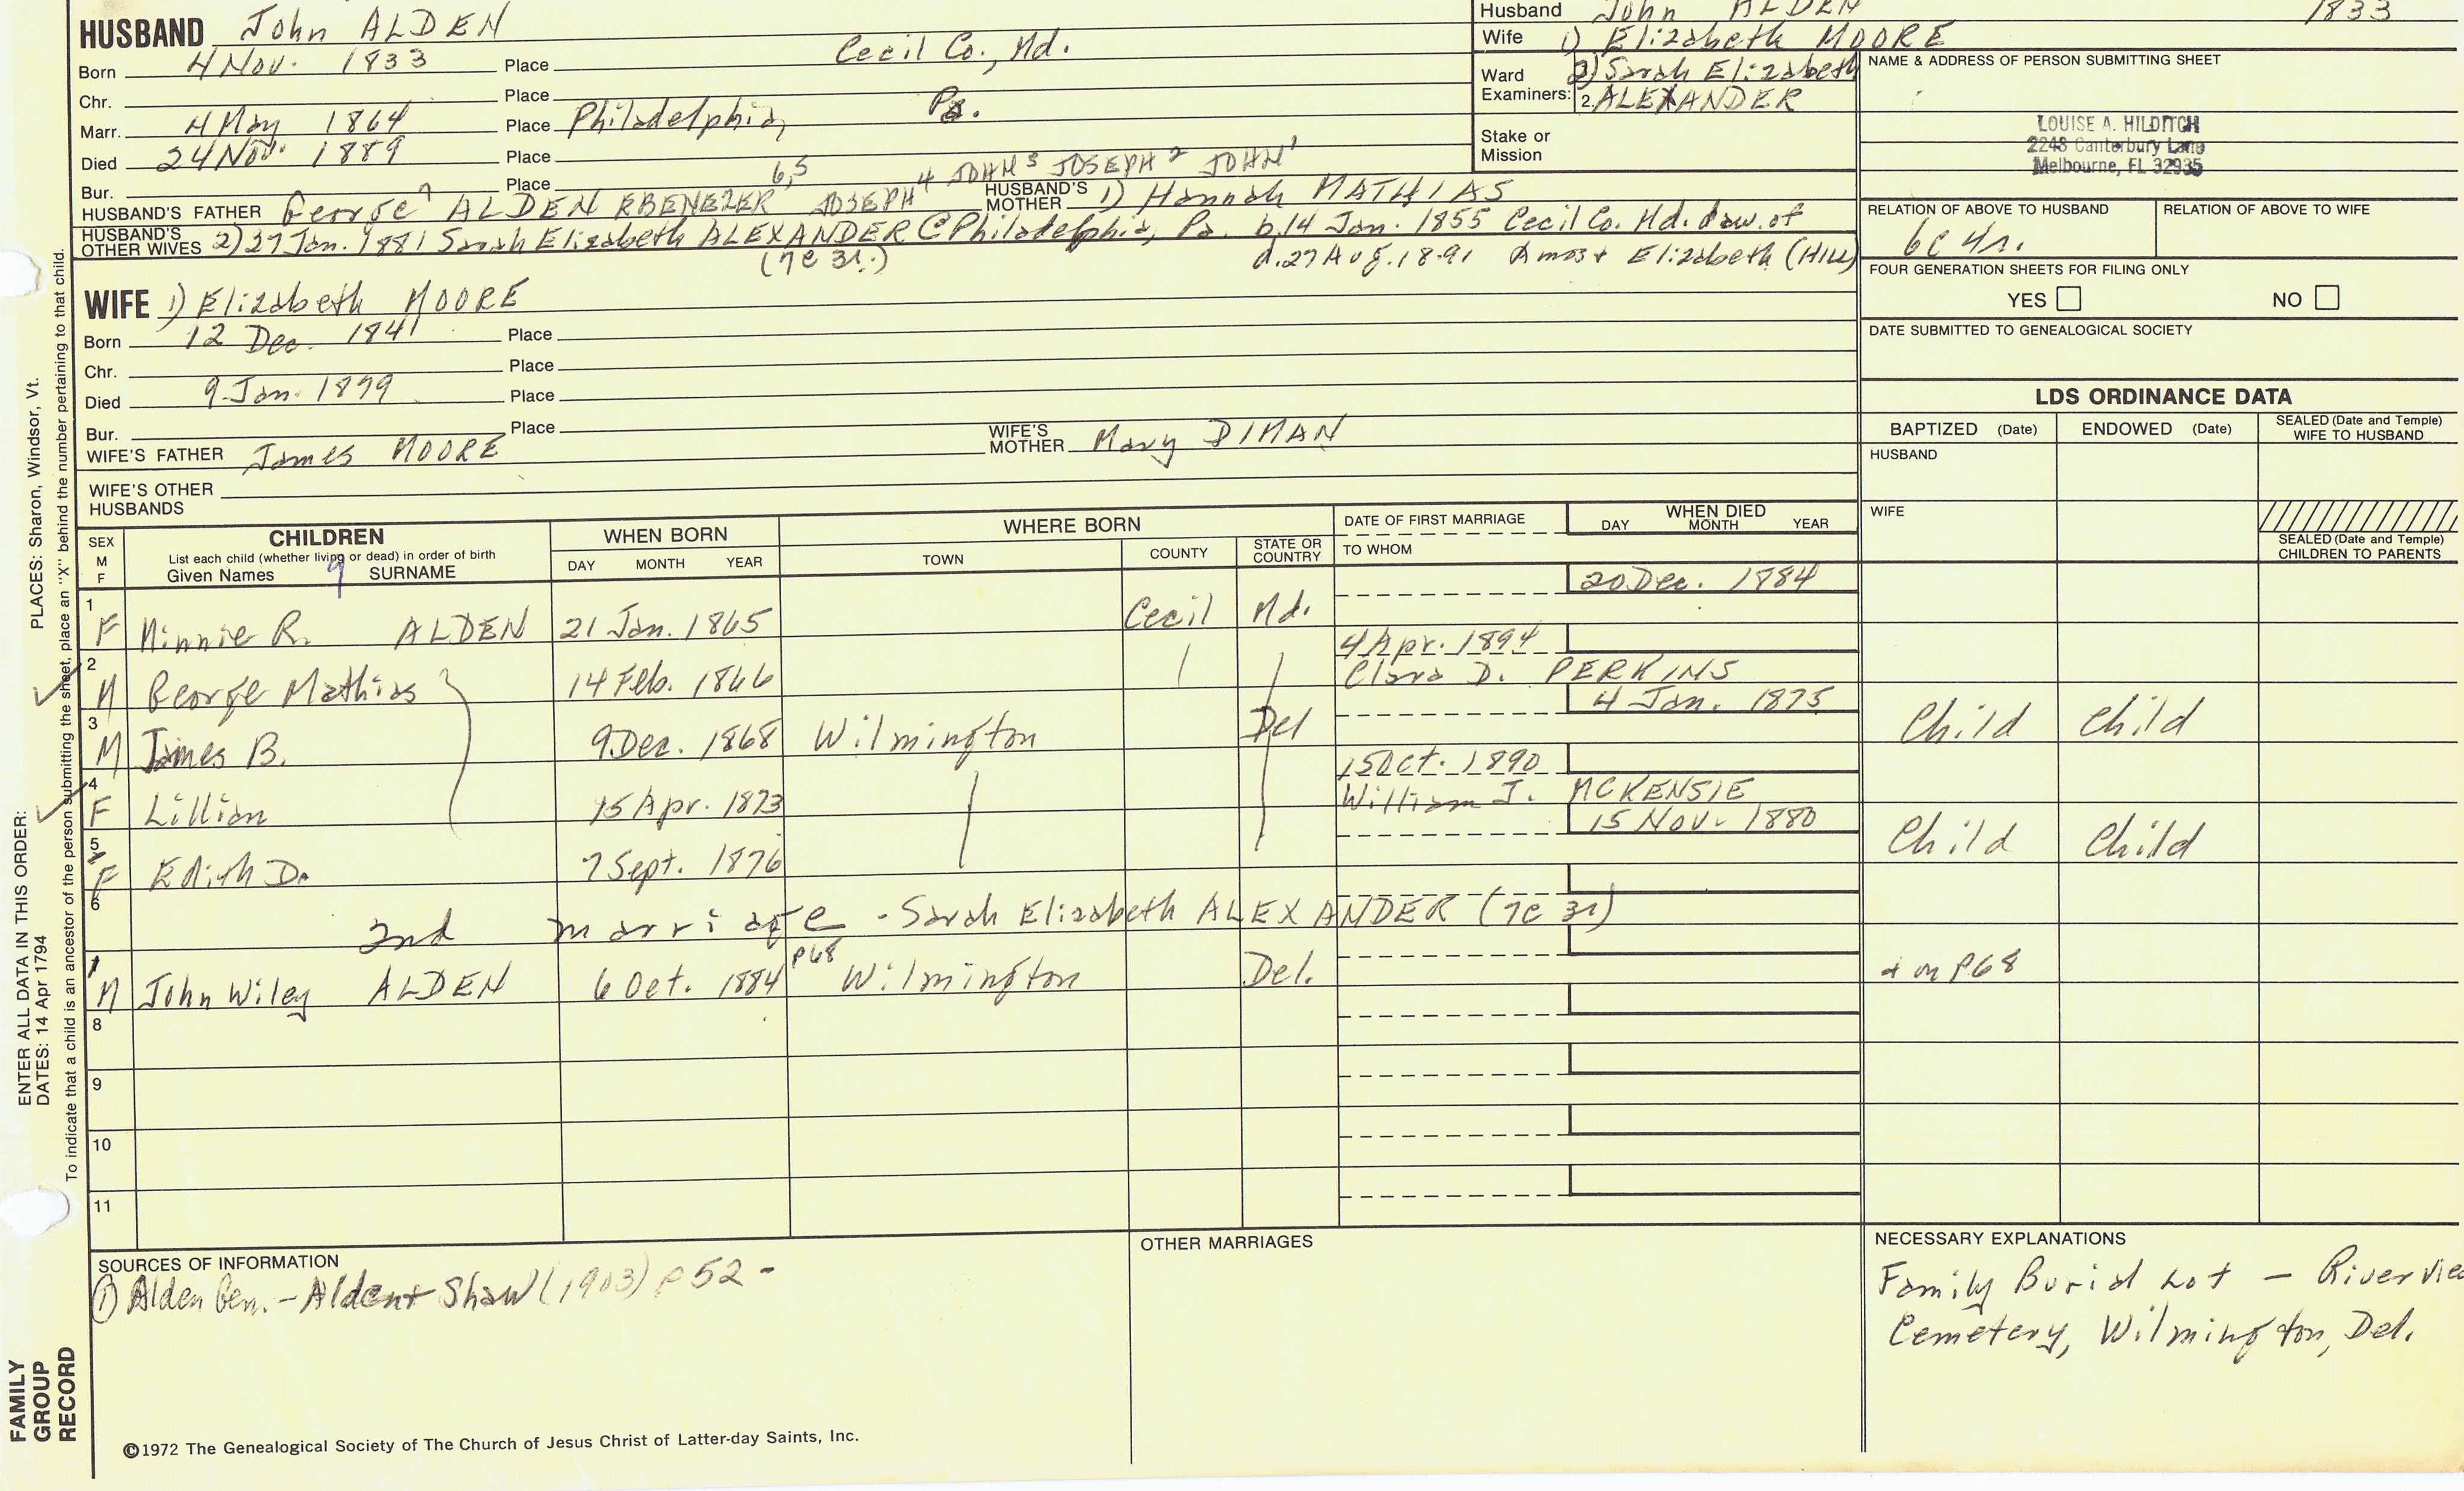 HUSBAND John ALDEN
Born 4 Nov. 1833 Place Cecil Co., Md.
Chr. Place
Marr. 4 May 1864 Place Philadelphia, Pa.
Died 24 Nov. 1889 Place
Bur. Place
6,5 4 JOHN 3 JOSEPH 2 JOHN 1
HUSBAND'S FATHER George 7 ALDEN EBENEZER JOSEPH HUSBAND'S MOTHER 1) Hannah MATHIAS
HUSBAND'S OTHER WIVES 2) 27 Jan. 1881 Sarah Elizabeth ALEXANDER @ Philadelphia, Pa. b. 14 Jan. 1855 Cecil Co. Md. dau. of
(7c 3r.) d. 27 Aug. 1891 Amos + Elizabeth (HILL)
Husband John ALDEN 1833
Wife 1) Elizabeth MOORE
Ward 2) Sarah Elizabeth
Examiners: 2. ALEXANDER
Stake or
Mission
NAME & ADDRESS OF PERSON SUBMITTING SHEET
LOUISE A. HILDITCH
2248 Canterbury Lane
Melbourne, FL 32935
RELATION OF ABOVE TO HUSBAND RELATION OF ABOVE TO WIFE
6c 4r.
FOUR GENERATION SHEETS FOR FILING ONLY
YES NO
DATE SUBMITTED TO GENEALOGICAL SOCIETY
WIFE 1) Elizabeth MOORE
Born 12 Dec. 1841 Place
Chr. Place
Died 9 Jan. 1879 Place
Bur. Place
WIFE'S FATHER James MOORE WIFE'S MOTHER Mary DIMAN
WIFE'S OTHER
HUSBANDS
LDS ORDINANCE DATA
BAPTIZED (Date) ENDOWED (Date) SEALED (Date and Temple) WIFE TO HUSBAND
HUSBAND
WIFE
SEALED (Date and Temple)
CHILDREN TO PARENTS
SEX
M
F
CHILDREN
List each child (whether living or dead) in order of birth
Given Names SURNAME
WHEN BORN
DAY MONTH YEAR
WHERE BORN
TOWN COUNTY STATE OR COUNTRY
DATE OF FIRST MARRIAGE
TO WHOM
WHEN DIED
DAY MONTH YEAR
1 20 Dec. 1884
F Minnie R. ALDEN 21 Jan. 1865 Cecil Md.
2 4 Apr. 1894
M George Mathias 14 Feb. 1866 Clara D. PERKINS
3 4 Jan. 1875
M James B. 9 Dec. 1868 Wilmington Del Child Child
4 15 Oct. 1890
F Lillian 15 Apr. 1873 William J. MCKENSIE
5 15 Nov. 1880
F Edith D. 7 Sept. 1876 Child Child
6
2nd marriage - Sarah Elizabeth ALEXANDER (7c 3r)
1 p68
M John Wiley ALDEN 6 Oct. 1884 Wilmington Del. + m p68
8
9
10
11
SOURCES OF INFORMATION
1 Alden Gen. - Alden + Shaw (1903) p 52 -
OTHER MARRIAGES
NECESSARY EXPLANATIONS
Family Burial Lot - Rivervie
Cemetery, Wilmington, Del.
©1972 The Genealogical Society of The Church of Jesus Christ of Latter-day Saints, Inc.
ENTER ALL DATA IN THIS ORDER:
DATES: 14 Apr 1794 PLACES: Sharon, Windsor, Vt.
To indicate that a child is an ancestor of the person submitting the sheet, place an "X" behind the number pertaining to that child.
FAMILY
GROUP
RECORD